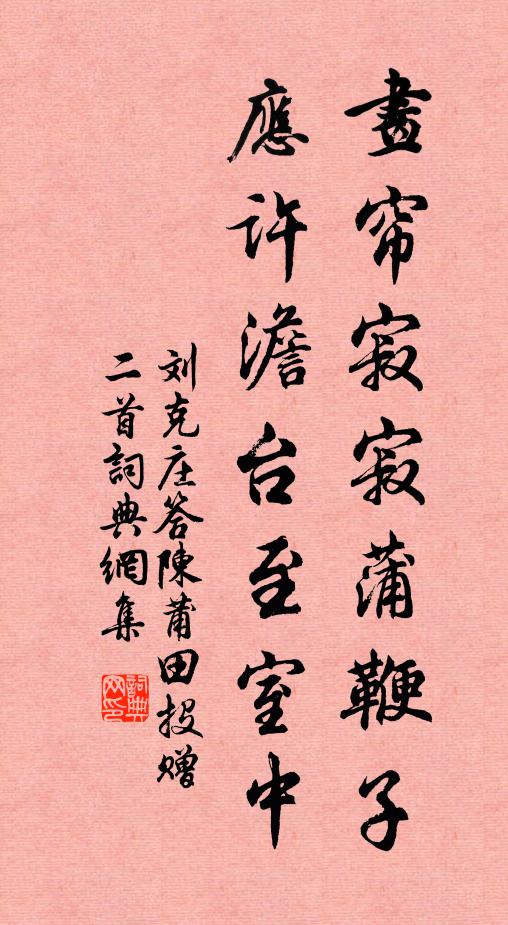 晝帘寂寂蒲鞭子
應許澹台至室中
刘克庄答陳莆田投赠
二首詞典網集
詞典網印